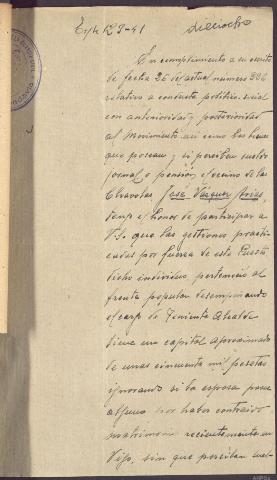 Expte 129-41 dieciocho
En cumplimiento a su escrito
de fecha 26 del actual número 906
relativo a conducta político-social
con anterioridad y posterioridad
al Movimiento así como los bienes
que poseian y si perciben sueldo
jornal o pensión, el vecino de las
Chavolas José Vázquez Arias,
tengo el honor de participar a
V.S. que las gestiones practi-
cadas por fuerza de este Puesto
dicho individuo pertenecio al
frente popular desempeñando
el cargo de Teniente Alcalde
tiene un capital aproximado
de unas cincuenta mil pesetas
ignorando si la esposa posee
algunos por haber contraido
matrimonio recientemente en
Vigo, sin que perciban suel-